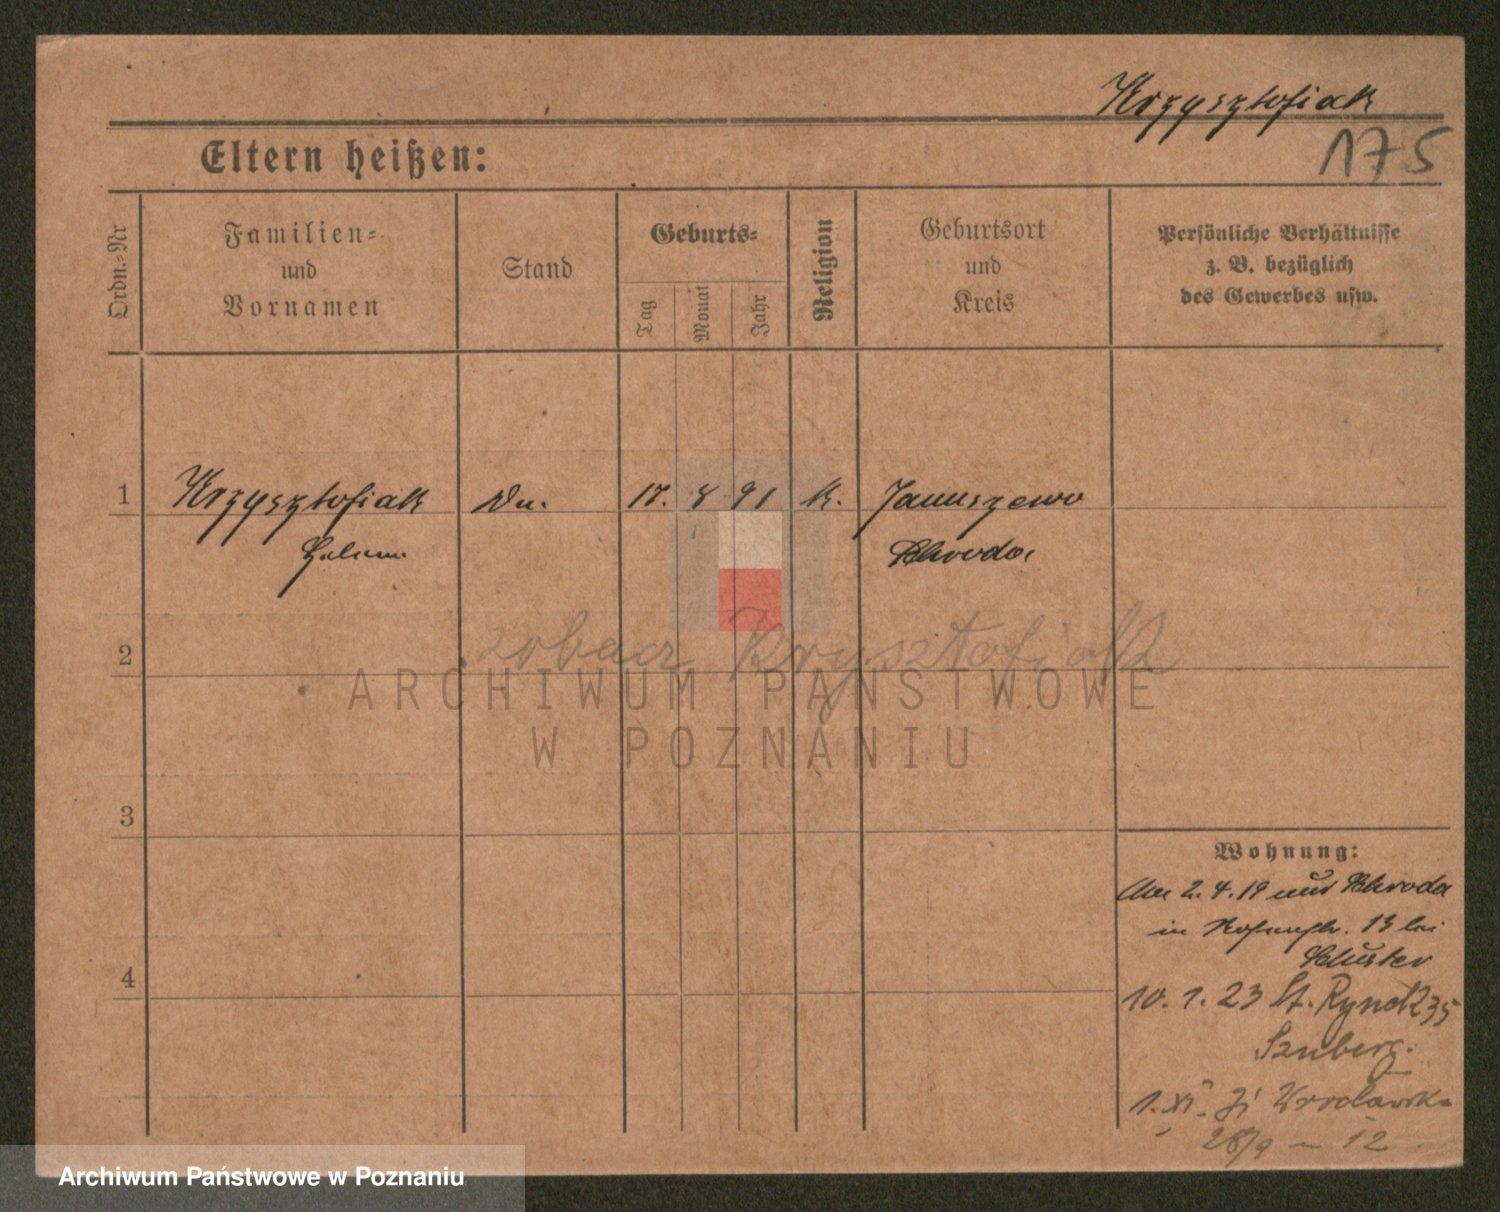 Krzysztofiak
175
Eltern heißen:
Ordn.-Nr
Familien-
und
Vornamen
Stand
Geburts-
Tag
Monat
Jahr
Religion
Geburtsort
und
Kreis
Persönliche Verhältnisse
z. B. bezüglich
des Gewerbes usw.
1 Krzysztofiak 17. 8 91 k. Januszewo
Schroda
2 zobacz Krysztofiak
ARCHIWUM PAŃSTWOWE
W POZNANIU
3
4
Wohnung:
2.4.19 aus Schroda
in 13 bei
Schuster
10. 1. 23 St. Rynek 35
Szuberg.
1. XI. Wrocławska
12
Archiwum Państwowe w Poznaniu